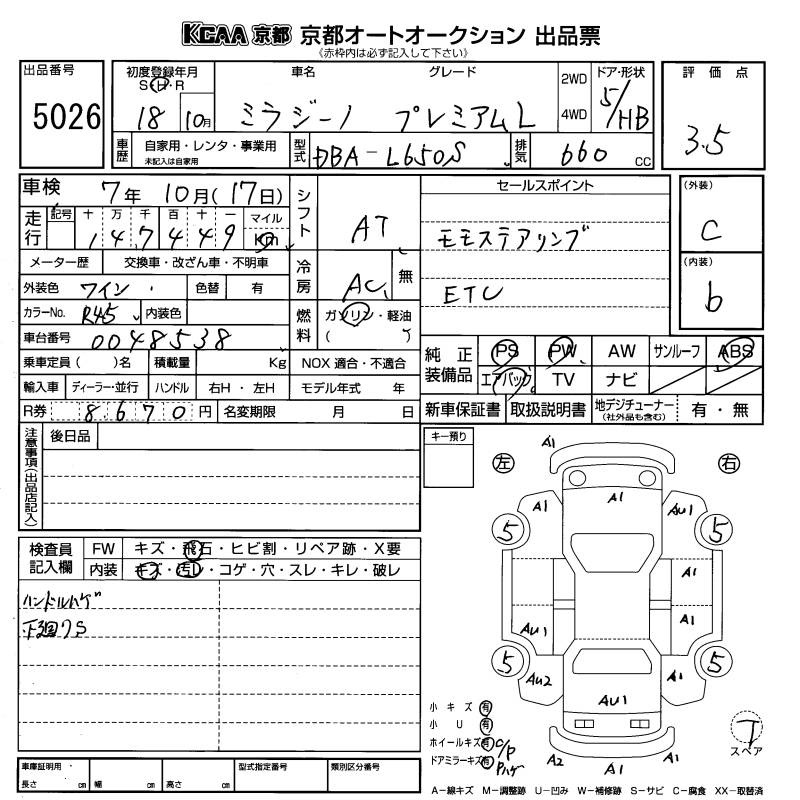 KCAA 京都 京都オートオークション 出品票
《赤枠内は必ず記入して下さい》
出品番号
5026
初度登録年月
S・H・R
18 10月
車名
グレード
ミラジーノ プレミアムL
2WD
4WD
ドア・形状
5/HB
評価点
3.5
車歴
自家用・レンタ・事業用
未記入は自家用
型式
DBA-L650S
排気
660 CC
車検 7年 10月(17日)
走行
記号 十 万 千 百 十 一 マイル
1 4 7 4 4 9 Km
メーター歴 交換車・改ざん車・不明車
外装色 ワイン 色替 有
カラーNo. R45 内装色
車台番号 0048538
乗車定員( )名 積載量 Kg
輸入車 ディーラー・並行 ハンドル 右H・左H
R券 8670円 名変期限 月 日
シフト AT
冷房 AC 無
燃料 ガソリン・軽油
( )
NOX 適合・不適合
モデル年式 年
セールスポイント
モモステアリング
ETC
(外装)
C
(内装)
b
純正装備品
PS PW AW サンルーフ ABS
エアバッグ TV ナビ
新車保証書 取扱説明書 地デジチューナー
(社外品も含む) 有・無
注意事項(出品店記入)
後日品
検査員記入欄
FW キズ・飛石・ヒビ割・リペア跡・X要
内装 キズ・汚レ・コゲ・穴・スレ・キレ・破レ
ハンドルハゲ
キー預り
左
右
A1
A1
A1 AU1
5 5
A1
AU1 A1
5 5
AU2 A1
AU1
A2 A1 A1
小キズ 有
小U 有
ホイールキズ 有 C/P
ドアミラーキズ 有 Pハゲ
T
スペア
車庫証明用・
長さ cm 幅 cm 高さ cm
型式指定番号
類別区分番号
A-線キズ M-調整跡 U-凹み W-補修跡 S-サビ C-腐食 XX-取替済